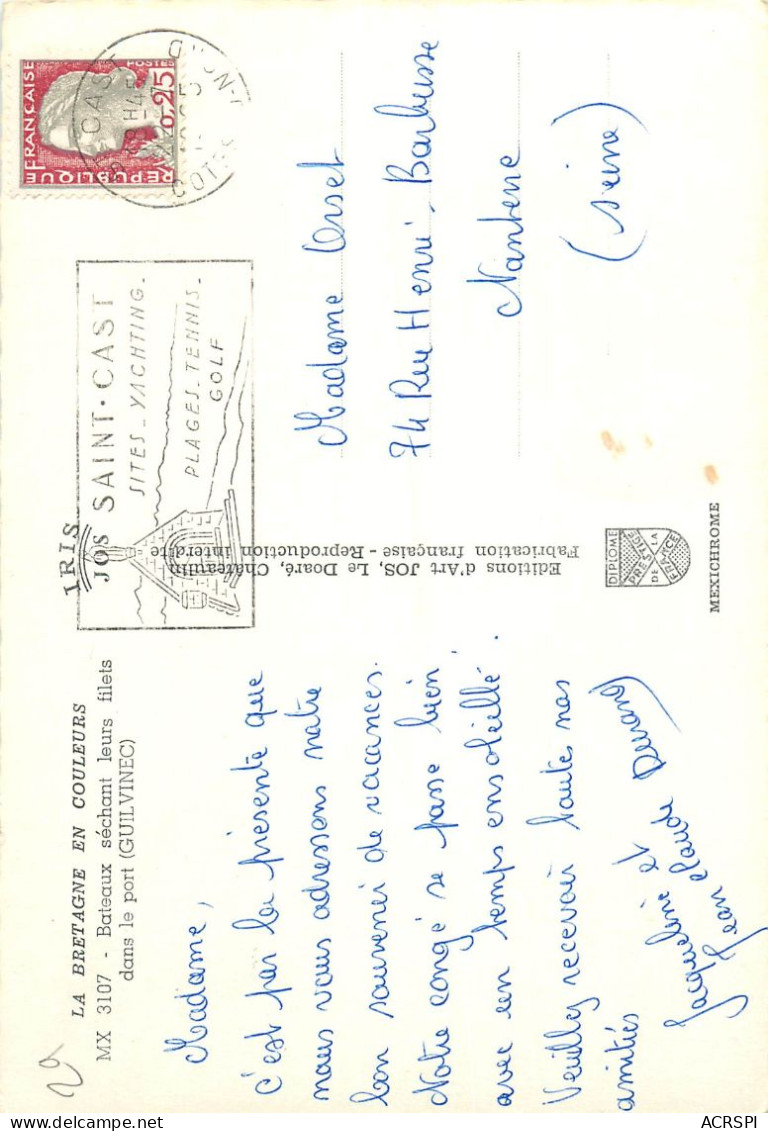 LA BRETAGNE EN COULEURS
MX 3107 - Bateaux séchant leurs filets
dans le port (GUILVINEC)
Madame,
c'est par la présente que
nous vous adressons notre
bon souvenir de vacances.
Notre congé se passe bien
avec un temps ensoleillé.
Veuillez recevoir toute nos
amitiés
Jacqueline et
Jean Claude
IRIS
JOS
Editions d'Art JOS, Le Doaré, Châteaulin
Fabrication française - Reproduction interdite
DIPLOME
PRESTIGE
DE LA
FRANCE
MEXICHROME
SAINT·CAST
SITES_YACHTING_
PLAGES_TENNIS_
GOLF
REPUBLIQUE FRANÇAISE
POSTES
0,25
CAST
8H45
COTES
Madame Orset
74 Rue Henri Barbusse
Nanterre
(Seine)
29
ACRSPI